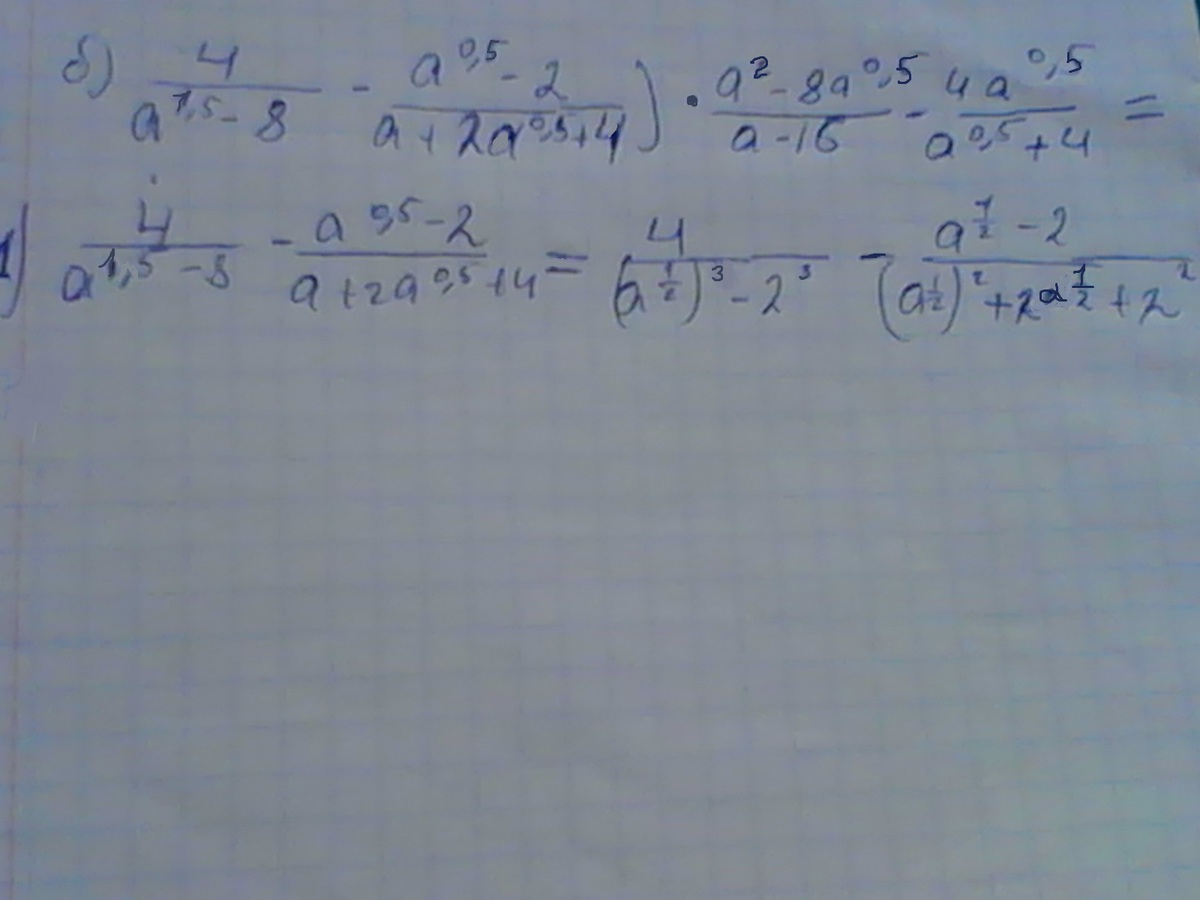 б) 4/(a^{1,5} - 8) - (a^{0,5} - 2)/(a + 2a^{0,5} + 4)) · (a^2 - 8a^{0,5})/(a - 16) - 4a^{0,5}/(a^{0,5} + 4) =
1) 4/(a^{1,5} - 8) - (a^{0,5} - 2)/(a + 2a^{0,5} + 4) = 4/((a^{1/2})^3 - 2^3) - (a^{1/2} - 2)/((a^{1/2})^2 + 2a^{1/2} + 2^2)